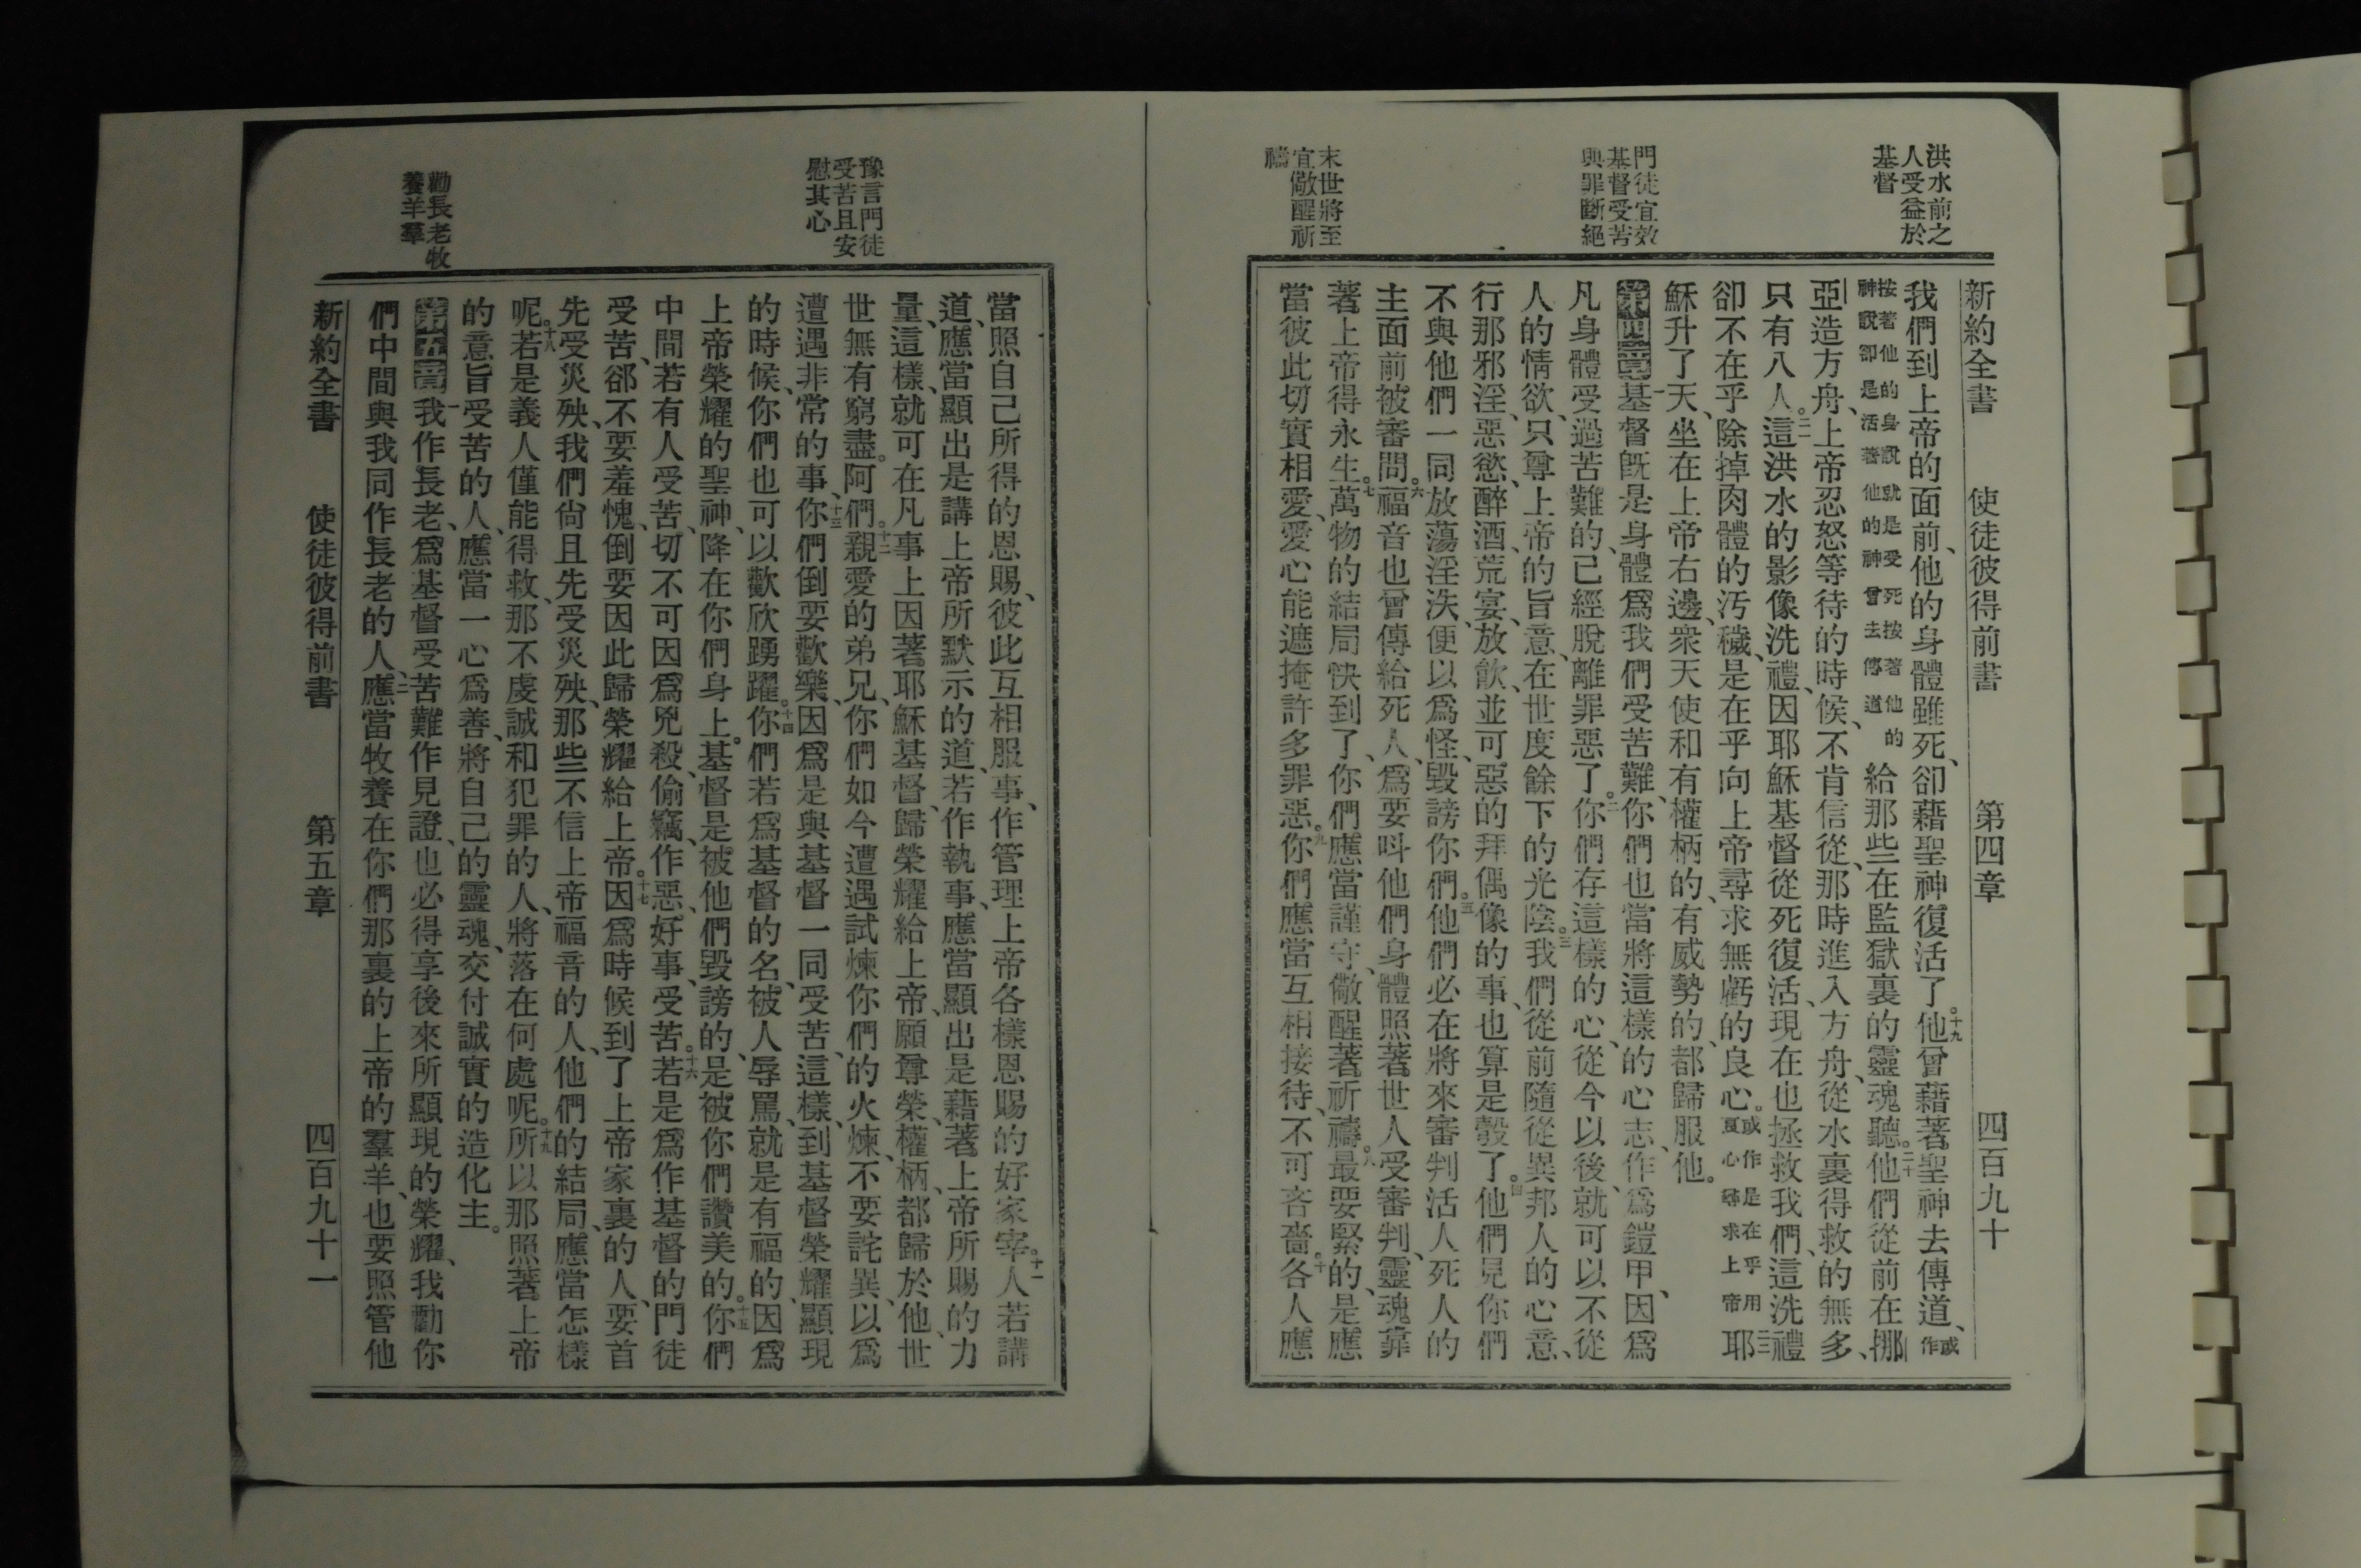 洪水前之
人受益於
基督
門徒宜效
基督受苦
與罪斷絕
末世將至
宜儆醒祈
禱
新約全書 使徒彼得前書 第四章 四百九十
我們到上帝的面前、他的身體雖死、卻藉聖神復活了。十九他曾藉著聖神去傳道、或作
按著他的身說就是受死按著他的神說卻是活著他的神曾去傳道給那些在監獄裏的靈魂聽。二十他們從前在挪
亞造方舟、上帝忍怒等待的時候、不肯信從、那時進入方舟、從水裏得救的無多、
只有八人。二一這洪水的影像洗禮、因耶穌基督從死復活、現在也拯救我們、這洗禮
卻不在乎除掉肉體的汚穢、是在乎向上帝尋求無虧的良心。或作是在乎用虛心尋求上帝二二耶
穌升了天、坐在上帝右邊、衆天使和有權柄的、有威勢的、都歸服他。
第四章一基督旣是身體爲我們受苦難、你們也當將這樣的心志作爲鎧甲、因爲
凡身體受過苦難的、已經脫離罪惡了。二你們存這樣的心、從今以後、就可以不從
人的情欲、只尊上帝的旨意、在世度餘下的光陰。三我們從前隨從異邦人的心意、
行那邪淫、惡慾、醉酒、荒宴、放飮、並可惡的拜偶像的事、也算是彀了。四他們見你們
不與他們一同放蕩淫泆、便以爲怪、毀謗你們。五他們必在將來審判活人死人的
主面前被審問。六福音也曾傳給死人、爲要呌他們身體照著世人受審判、靈魂靠
著上帝得永生。七萬物的結局快到了、你們應當謹守、儆醒著祈禱。八最要緊的、是應
當彼此切實相愛、愛心能遮掩許多罪惡。九你們應當互相接待、不可吝嗇。十各人應
豫言門徒
受苦且安
慰其心
勸長老牧
養羊羣
當照自己所得的恩賜、彼此互相服事、作管理上帝各樣恩賜的好家宰。十一人若講
道、應當顯出是講上帝所默示的道、若作執事、應當顯出是藉著上帝所賜的力
量、這樣、就可在凡事上因著耶穌基督、歸榮耀給上帝、願尊榮、權柄、都歸於他、世
世無有窮盡。阿們。十二親愛的弟兄、你們如今遭遇試煉你們的火煉、不要詫異、以爲
遭遇非常的事、十三你們倒要歡樂、因爲是與基督一同受苦、這樣、到基督榮耀顯現
的時候、你們也可以歡欣踴躍。十四你們若爲基督的名、被人辱罵、就是有福的、因爲
上帝榮耀的聖神、降在你們身上。基督是被他們毀謗的、是被你們讚美的。十五你們
中間若有人受苦、切不可因爲兇殺、偷竊、作惡、好事、受苦。十六若是爲作基督的門徒
受苦、郤不要羞愧、倒要因此歸榮耀給上帝。十七因爲時候到了、上帝家裏的人、要首
先受災殃、我們尙且先受災殃、那些不信上帝福音的人、他們的結局、應當怎樣
呢。十八若是義人僅能得救、那不虔誠和犯罪的人、將落在何處呢。十九所以那照著上帝
的意旨受苦的人、應當一心爲善、將自己的靈魂、交付誠實的造化主。
第五章一我作長老、爲基督受苦難作見證、也必得享後來所顯現的榮耀、我勸你
們中間與我同作長老的人、二應當牧養在你們那裏的上帝的羣羊、也要照管他
新約全書 使徒彼得前書 第五章 四百九十一